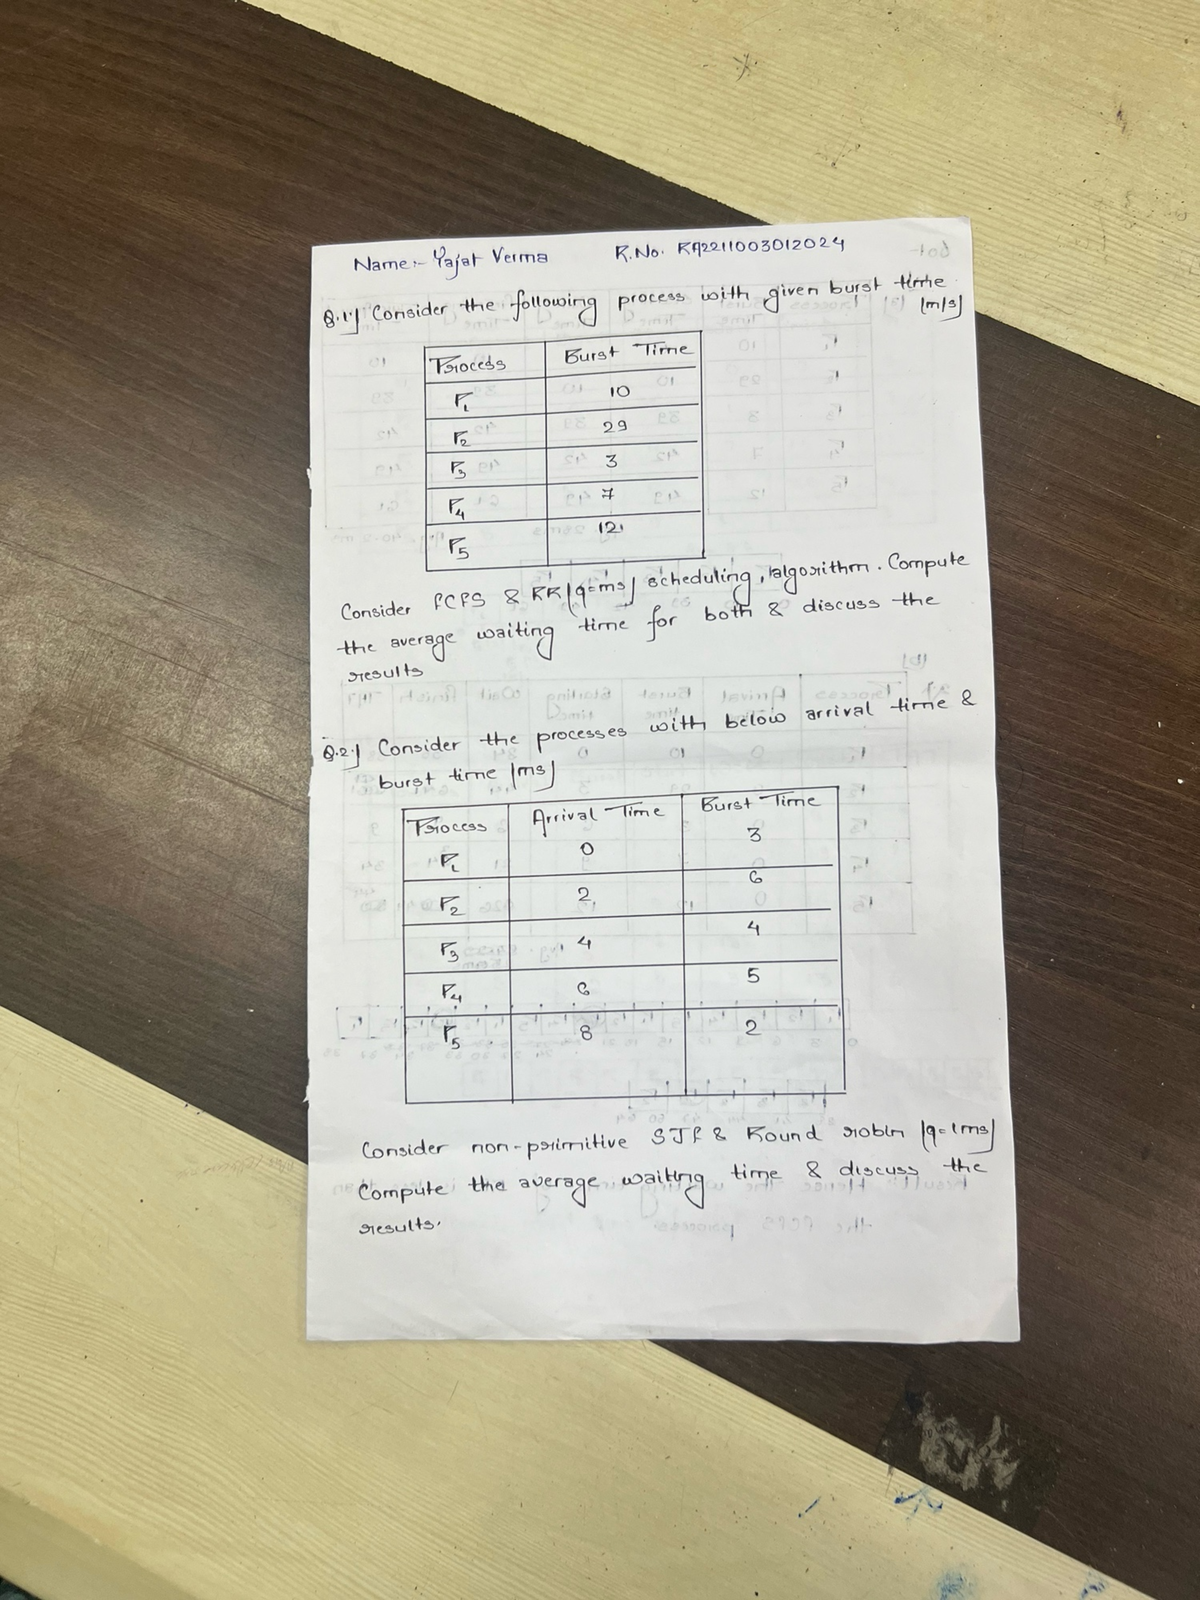 Name:- Yajat Verma R.No. RA2211003012024
Q.1.) Consider the following process with given burst time
(m/s)
Process Burst Time
P1 10
P2 29
P3 3
P4 7
P5 12
Consider FCFS & RR (q=ms) scheduling algorithm. Compute
the average waiting time for both & discuss the
results
Q.2.) Consider the processes with below arrival time &
burst time (ms)
Process Arrival Time Burst Time
P1 0 3
P2 2 6
P3 4 4
P4 6 5
P5 8 2
Consider non-primitive SJF & Round robin (q=1ms)
Compute the average waiting time & discuss the
results.